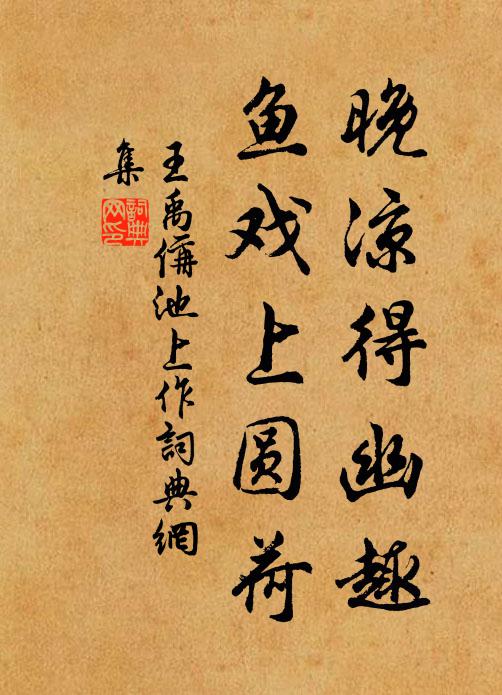 晚凉得幽趣
鱼戏上圆荷
王禹偁池上作詞典網
集
詞典
网印